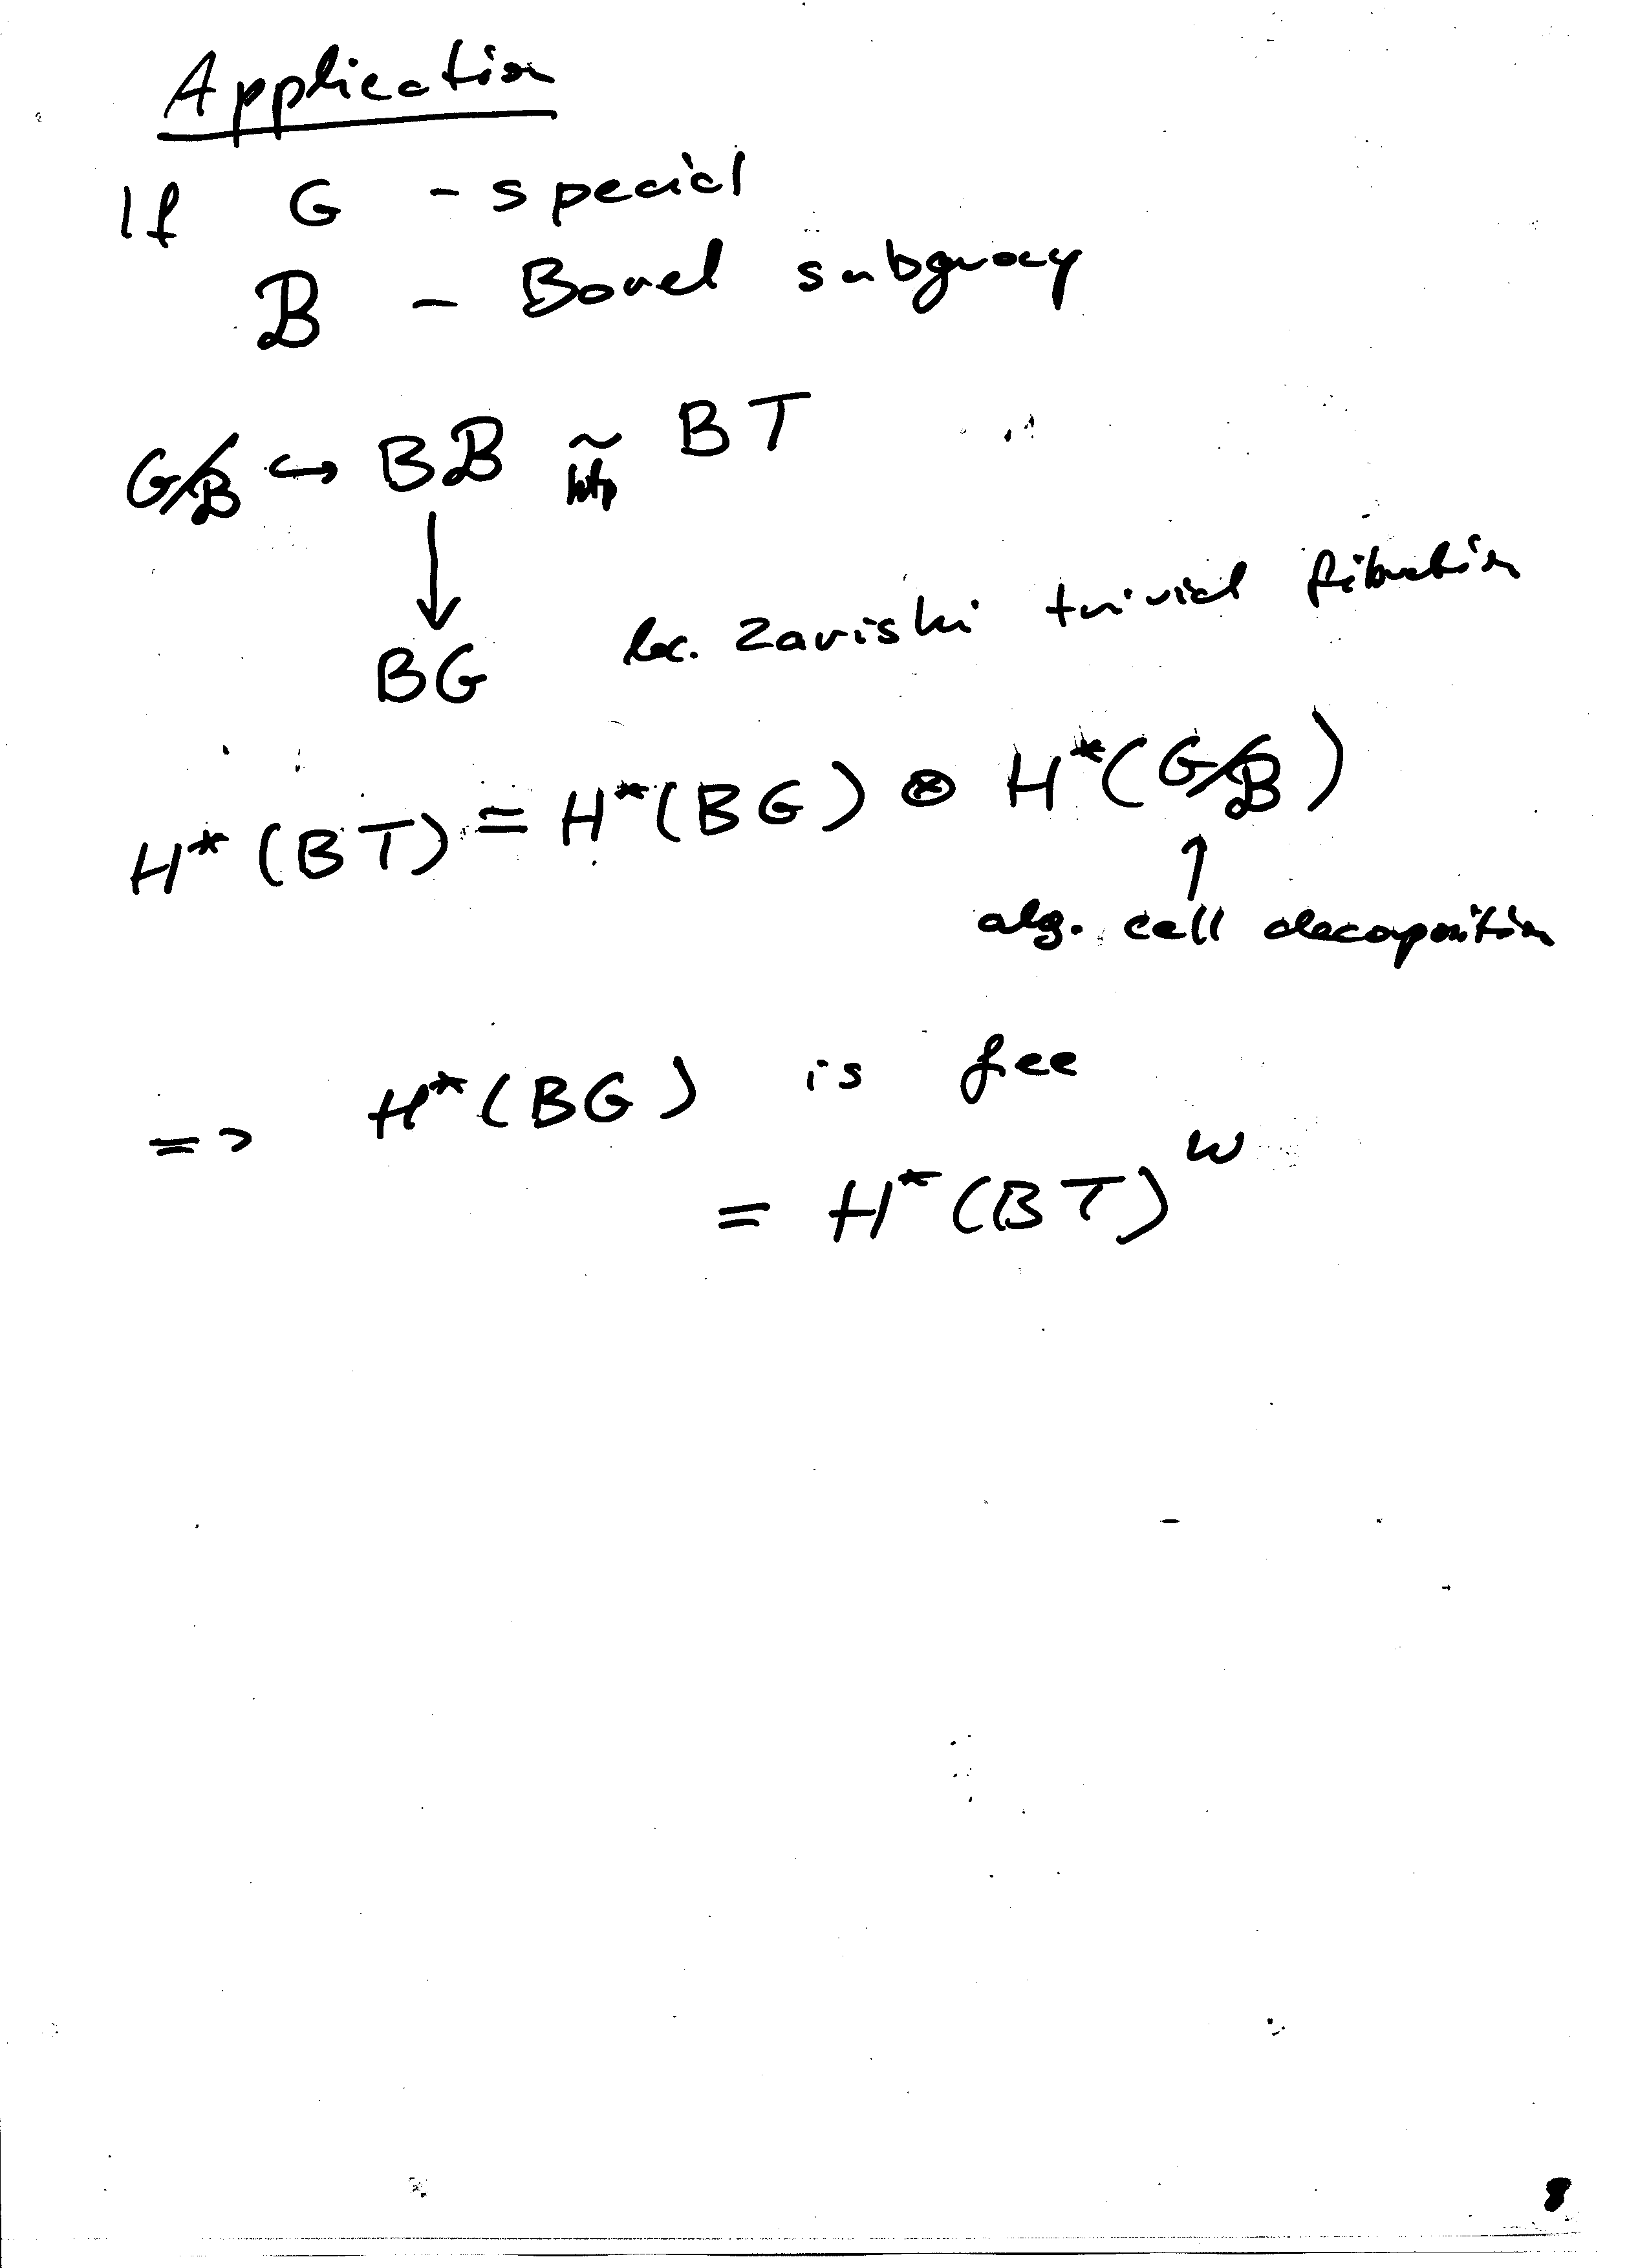 Application
If G - special
B - Borel subgroup
G/B ↪ BB ≃ htp BT
↓
BG loc. Zariski trivial fibration
H*(BT) = H*(BG) ⊗ H*(G/B)
↑
alg. cell decomposition
=> H*(BG) is free
= H*(BT)^W
8